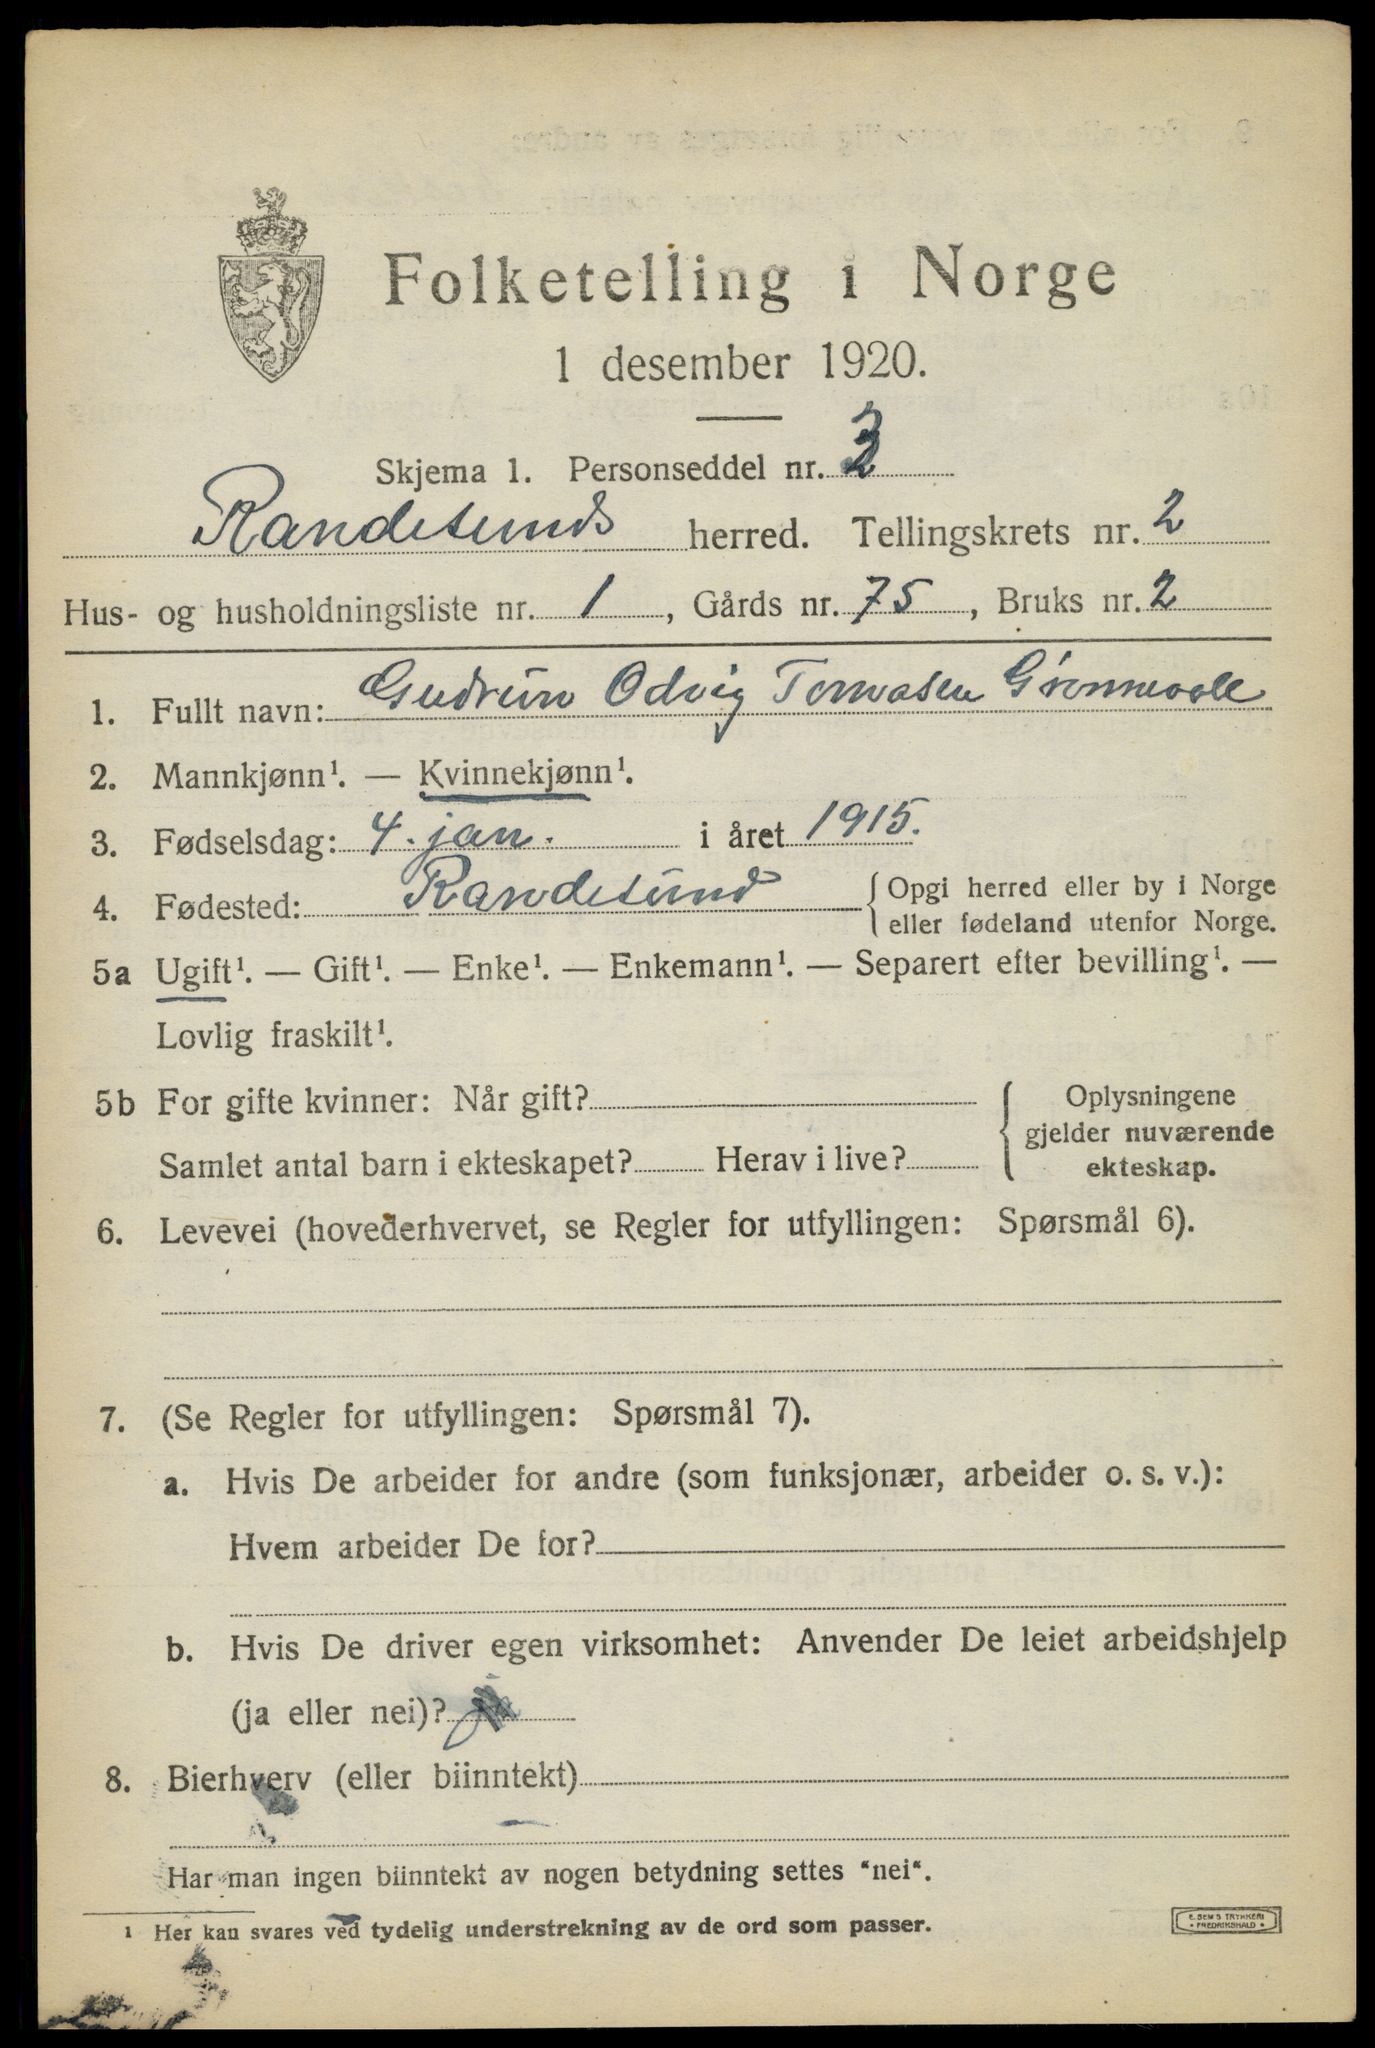 Folketelling i Norge
1 desember 1920.
Skjema 1. Personseddel nr. 3
Randesunds herred. Tellingskrets nr. 2
Hus- og husholdningsliste nr. 1, Gårds nr. 75, Bruks nr. 2
1. Fullt navn: Gudrun Odvig Tomasen
2. Mannkjønn¹. — Kvinnekjønn¹.
3. Fødselsdag: 4. jan. i året 1915.
4. Fødested: Randesund { Opgi herred eller by i Norge
eller fødeland utenfor Norge.
5a Ugift¹. — Gift¹. — Enke¹. — Enkemann¹. — Separert efter bevilling¹. —
Lovlig fraskilt¹.
5b For gifte kvinner: Når gift? { Oplysningene
gjelder nuværende
Samlet antal barn i ekteskapet? Herav i live? ekteskap.
6. Levevei (hovederhvervet, se Regler for utfyllingen: Spørsmål 6).
7. (Se Regler for utfyllingen: Spørsmål 7).
a. Hvis De arbeider for andre (som funksjonær, arbeider o. s. v.):
Hvem arbeider De for?
b. Hvis De driver egen virksomhet: Anvender De leiet arbeidshjelp
(ja eller nei)?
8. Bierhverv (eller biinntekt)
Har man ingen biinntekt av nogen betydning settes "nei".
1 Her kan svares ved tydelig understrekning av de ord som passer.
E. SEM'S TRYKKERI
• FREDRIKSHALD •